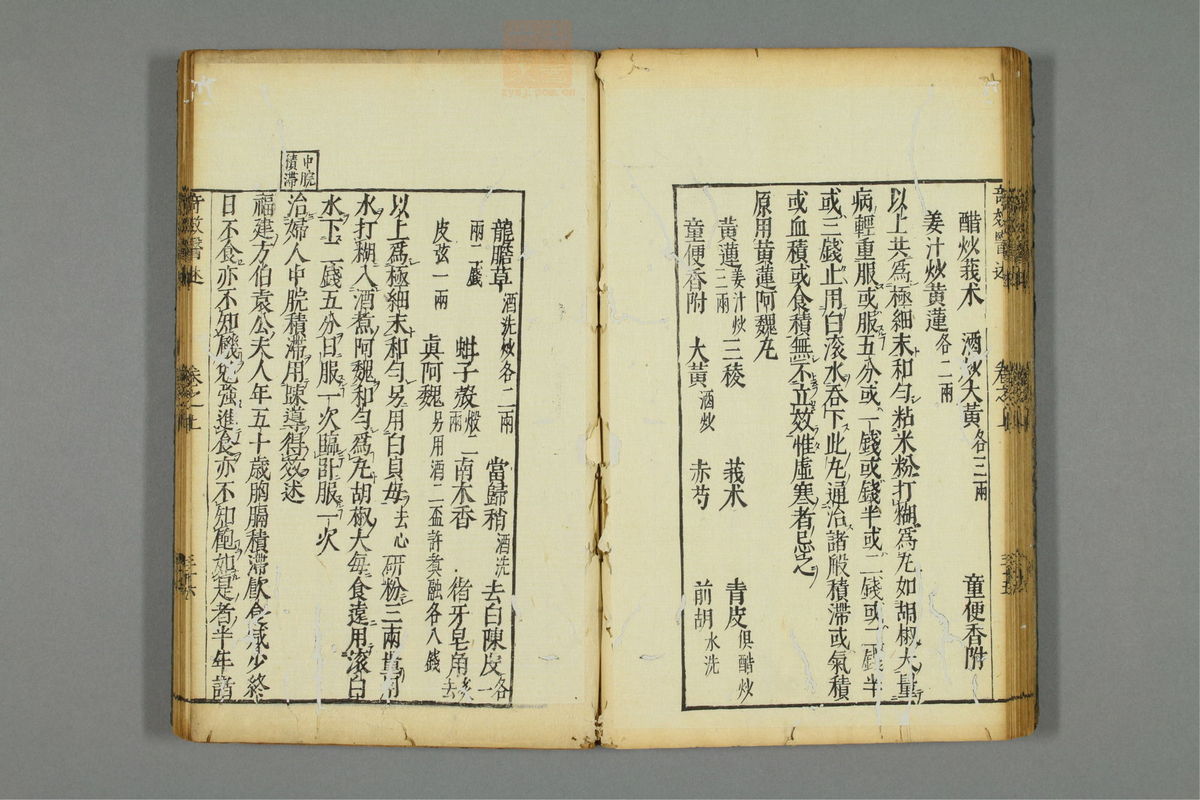 醋炒莪术 酒炒大黃各三兩 童便香附
姜汁炒黃蓮各二兩
以上共爲極細末和勻粘米粉打糊爲丸如胡椒大量
病輕重服或服五分或一錢或錢半或二錢或二錢半
或三錢止用白滚水吞下此丸通治諸般積滯或氣積
或血積或食積無不立效惟虛寒者忌之
原用黃蓮阿魏丸
黃蓮姜汁炒三兩 三稜 莪术 青皮俱醋炒
童便香附 大黃酒炒 赤芍 前胡水洗
龍膽草酒洗炒各二兩 當歸稍酒洗 去白陳皮各一
兩二錢 蚶子殼煅二兩 南木香 猪牙皂角 去
皮弦一兩 眞阿魏另用酒二盃許煑融各八錢
以上爲極細末和勻另用白貝毋去心研粉三兩
水打糊入酒煮阿魏和勻爲丸胡椒大每食遠用滚白
水下二錢五分日服一次臨卧服一次
中脘積滯
治婦人中脘積滯用疎導得效述
福建方伯袁公夫人年五十歲胸膈積滯飲食减少終
日不食亦不知饑勉強進食亦不知飽如是者半年諸